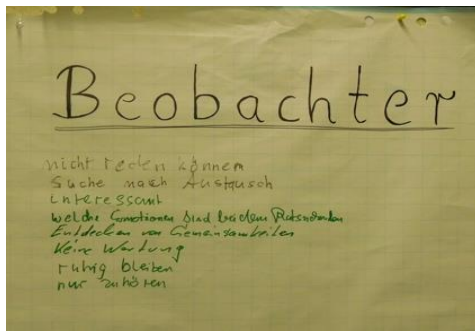 Beobachter
nicht reden können
Suche nach Austausch
interessant
welche Emotionen sind bei dem Ratsuchenden
Entdecken von Gemeinsamkeiten
Keine Wertung
ruhig bleiben
nur zuhören